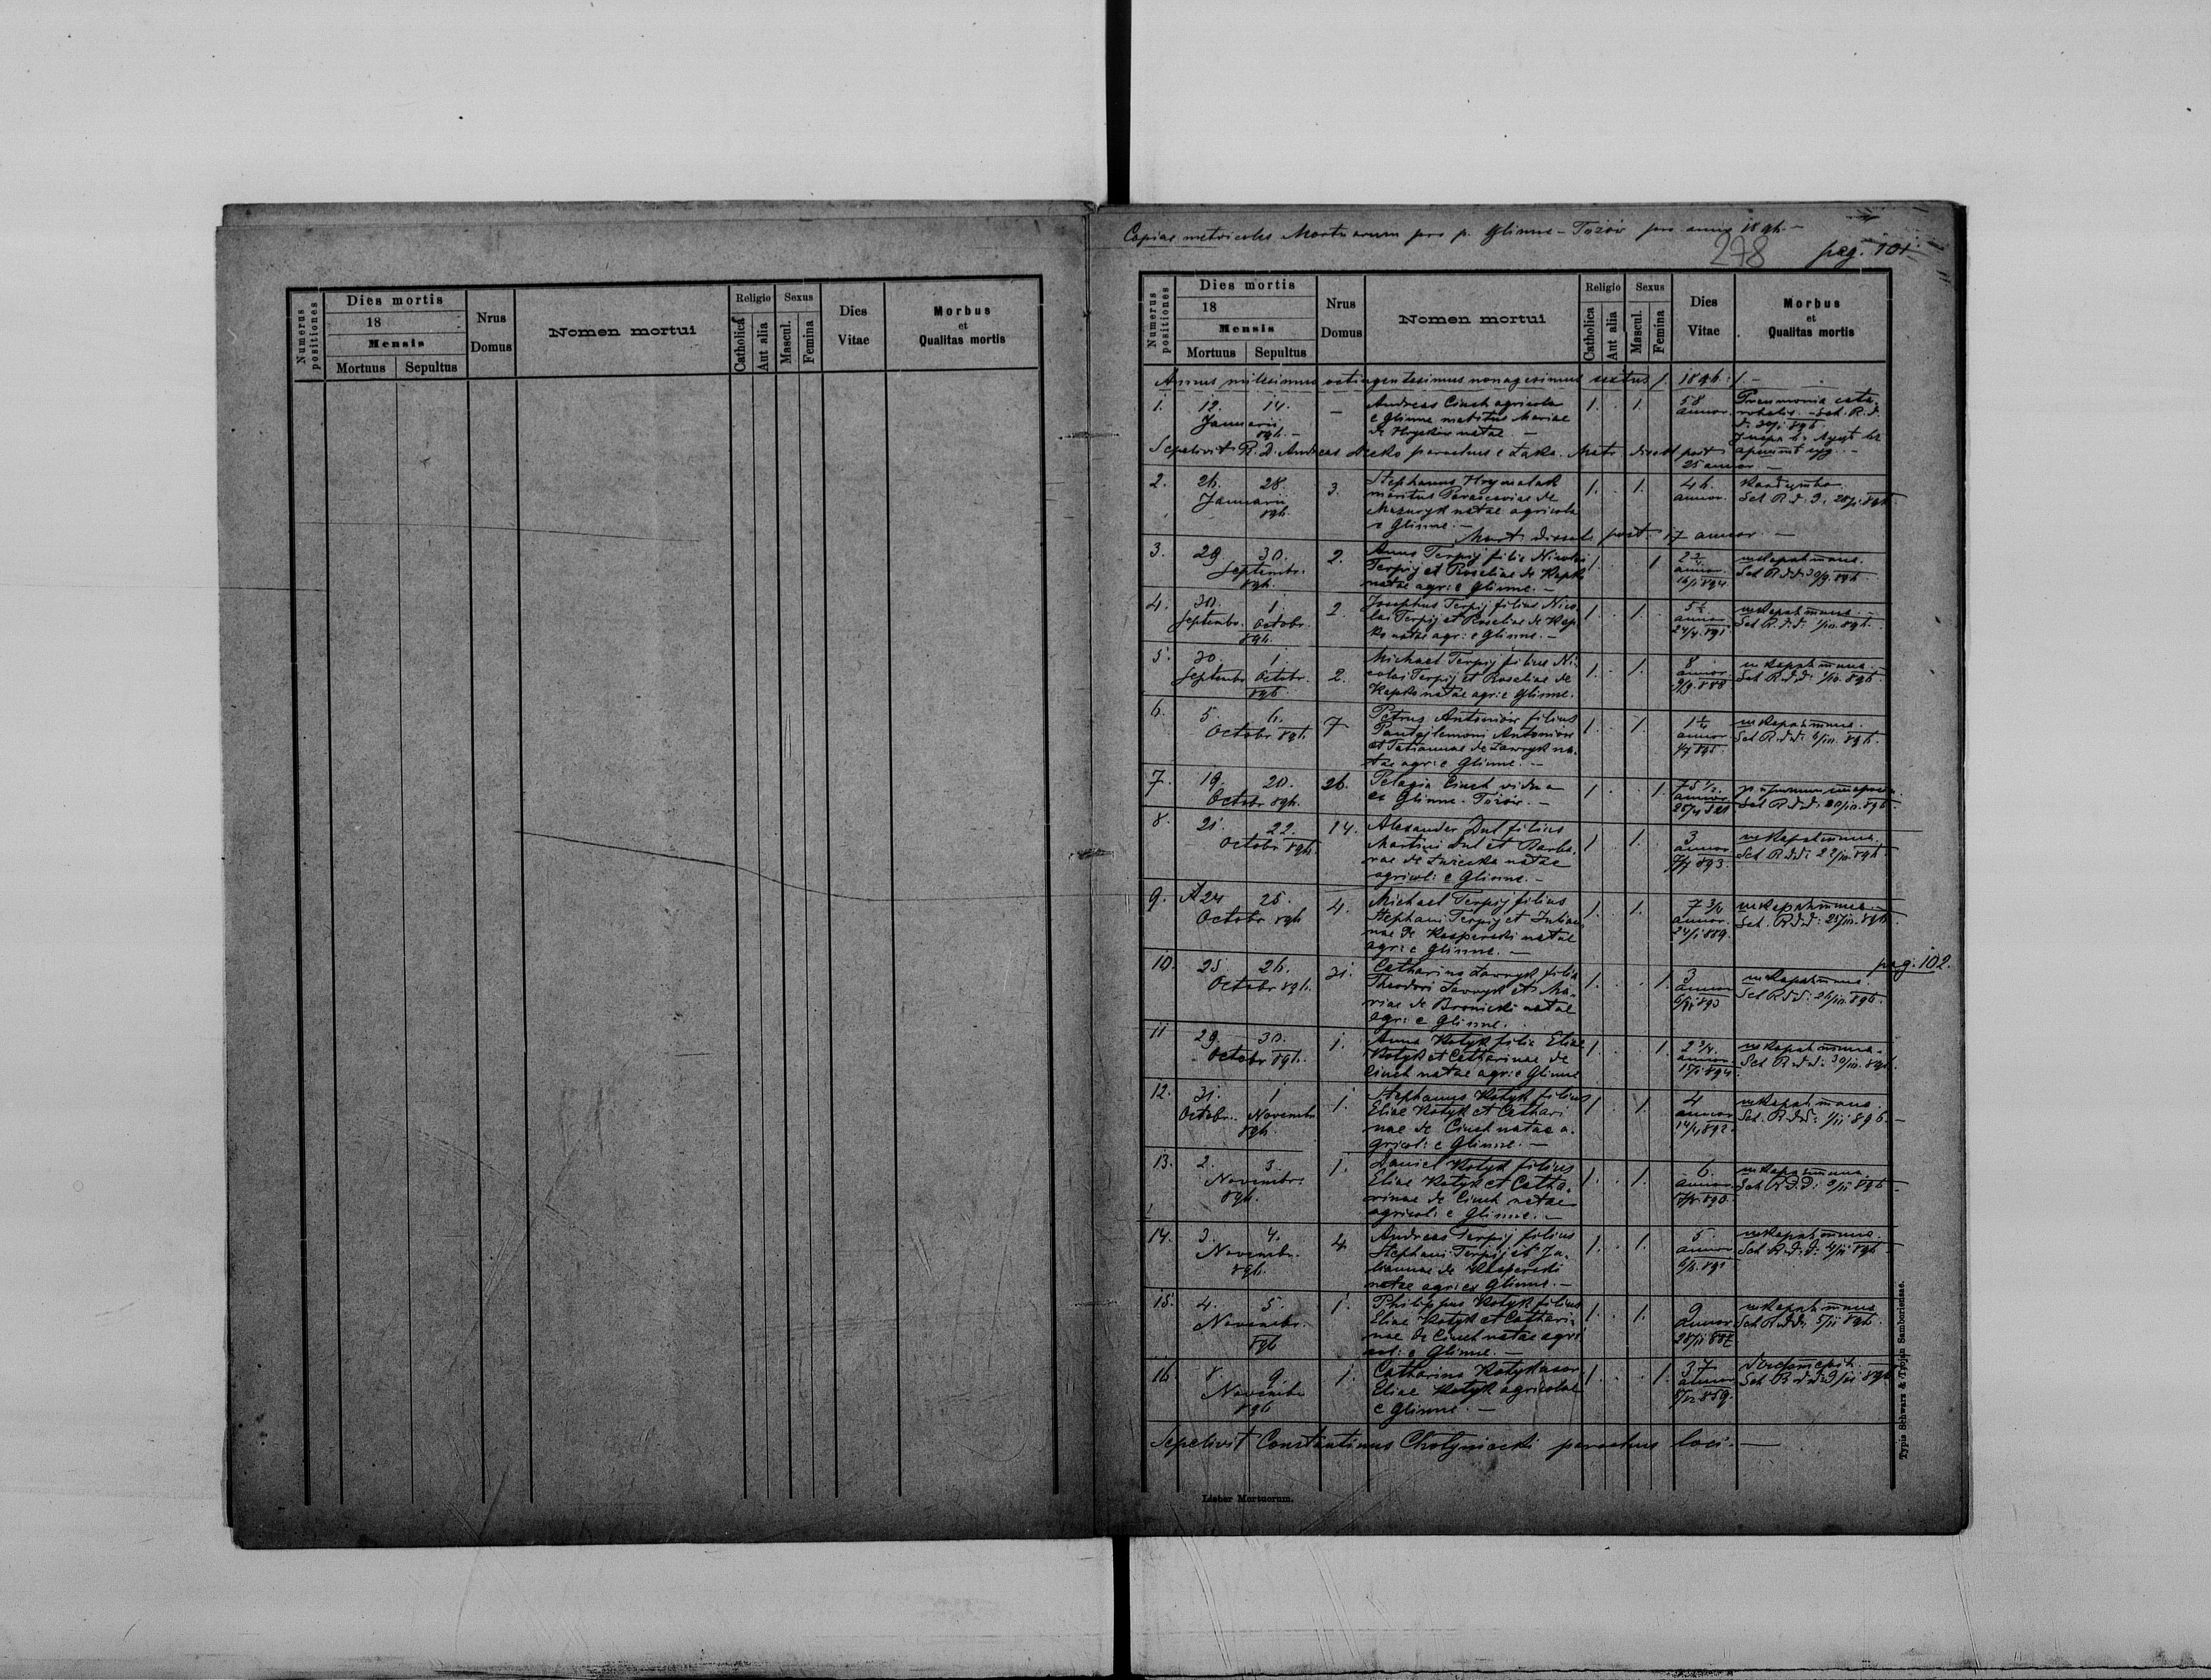 Numerus positiones
Dies mortis
18
Mensis
Mortuus Sepultus
Nrus Domus
Nomen mortui
Religio
Catholica
Aut alia
Sexus
Mascul.
Femina
Dies Vitae
Morbus
et
Qualitas mortis
Copiae metricales Mortuorum pro p. Glinne - Tożór pro anno 1896 -
278
pag. 101
Numerus positiones
Dies mortis
18
Mensis
Mortuus Sepultus
Nrus Domus
Nomen mortui
Religio
Catholica
Aut alia
Sexus
Mascul.
Femina
Dies Vitae
Morbus
et
Qualitas mortis
Annus milesimus octingentesimus nonagesimus sextus /. 1896 ./ -
1. 12. 14. - Andreas Cinch agricola 1. 1. 58 Pneumonia cata-
Januarii e Glinne maritus Mariae annor.
896. - de natae -
Sepelivit R. D. Andreas parochus e Łąka. post
25 annor -
2. 26. 28. 3. Stephanus Hrymalak 1. 1. 46.
Januarii maritus Parasceviae de annor. Sch R. d. D. 28/1 896
896. Mazuryk natae agricola
e Glinne. -
post 17 annor. -
3. 29. 30. 2. Anna Terpij filia Nicolai 1. 1 2 3/4
Septembr. Terpij et Roseliae de Kapko annor. Sch R. d. d. 30/9. 896
896. natae agr: e Glinne. - 16/1 894
4. 30. 1. 2. Josephus Terpij filius Nico- 1. 1. 5
Septembr. Octobr. lai Terpij et Roseliae de Kap- annor Sch R. d. d: 1/10. 896.
896. ko natae agr: e Glinne. - 891
5. 30. 1. 2. Michael Terpij filius Ni- 1. 1. 8
Septembr Octobr. colai Terpij et Roseliae de annor. Sch R. d. d: 1/10. 896.
896 Kapko natae agr: e Glinne. 9/9. 888
6. 5. 6. 7 Petrus Antoniów filius 1. 1. 1
Octobr 896. Pantajlemoni Antoniów annor Sch R. d. d: 6/10. 896.
et Tatiannae de Ławryk na- 895.
tae agr: e Glinne. -
7. 19. 20. 26. Pelagia Cinch vidua 1. 1. 75 1/2
Octobr 896. ex Glinne - Tożór. - annor Sch R. d. d: 20/10. 896.
821
8. 21. 22. 14. Alexander Dul filius 1. 1. 3
Octobr 896. Martini Dul et Barba- annor Sch R. d. d: 22/10. 896
rae de natae 893.
agricol: e Glinne. -
9. 24 25. 4. Michael Terpij filius 1. 1. 7 3/4
Octobr 896 Stephani Terpij et Julian- annor. Sch. R. d. d: 25/10. 896.
nae de Kasperski natae 24/1 889.
agr: e Glinne. -
pag. 102.
10. 25 26. 31. Catharina Ławryk filia 1. 1. 3
Octobr 896. Theodori Ławryk et Ma- annor Sch R. d. d: 26/10. 896.
riae de Bronicki natae 893
agr: e Glinne.
11 29. 30. 1. Anna Kotyk filia Eliae 1. 1. 2 3/4.
Octobr 896. Kotyk et Catharinae de annor. Sch R. d. d: 30/10. 896.
Cinch natae agr: e Glinne 15/1 894
12. 31. 1 1. Stephanus Kotyk filius 1 1. 4
Octobr. Novembr Eliae Kotyk et Cathari- annor Sch. R. d. d: 1/11 896. -
896. nae de Cinch natae a- 892.
gricol: e Glinne. -
13. 2. 3. 1. Daniel Kotyk filius 1. 1. 6.
Novembr. Eliae Kotyk et Catha- annor. Sch R. d. d: 3/11 896
896. rinae de Cinch natae 890.
agricol: e Glinne. -
14. 3. 4. 4 Andreas Terpij filius 1. 1. 5.
Novembr. Stephani Terpij et Ju- annor Sch R. d. d: 4/11 896
896. liannae de Kasperski 891
natae agr: ex Glinne. -
15. 4. 5. 1. Philippus Kotyk filius 1. 1. 9
Novembr. Eliae Kotyk et Cathari- annor Sch R. d. d: 5/11 896.
896 nae de Cinch natae agri- 28/11 887
col: e Glinne. -
16. 8 9. 1. Catharina Kotyk uxor 1. 1. 37
Novembr Eliae Kotyk agricolae annor Sch R d d. 9/11 896
896 e Glinne. - 859.
Sepelivit Constantinus Chotyniecki parochus loci. -
Lieber Mortuorum.
Typis Schwarz & Trojan Samboriensae.